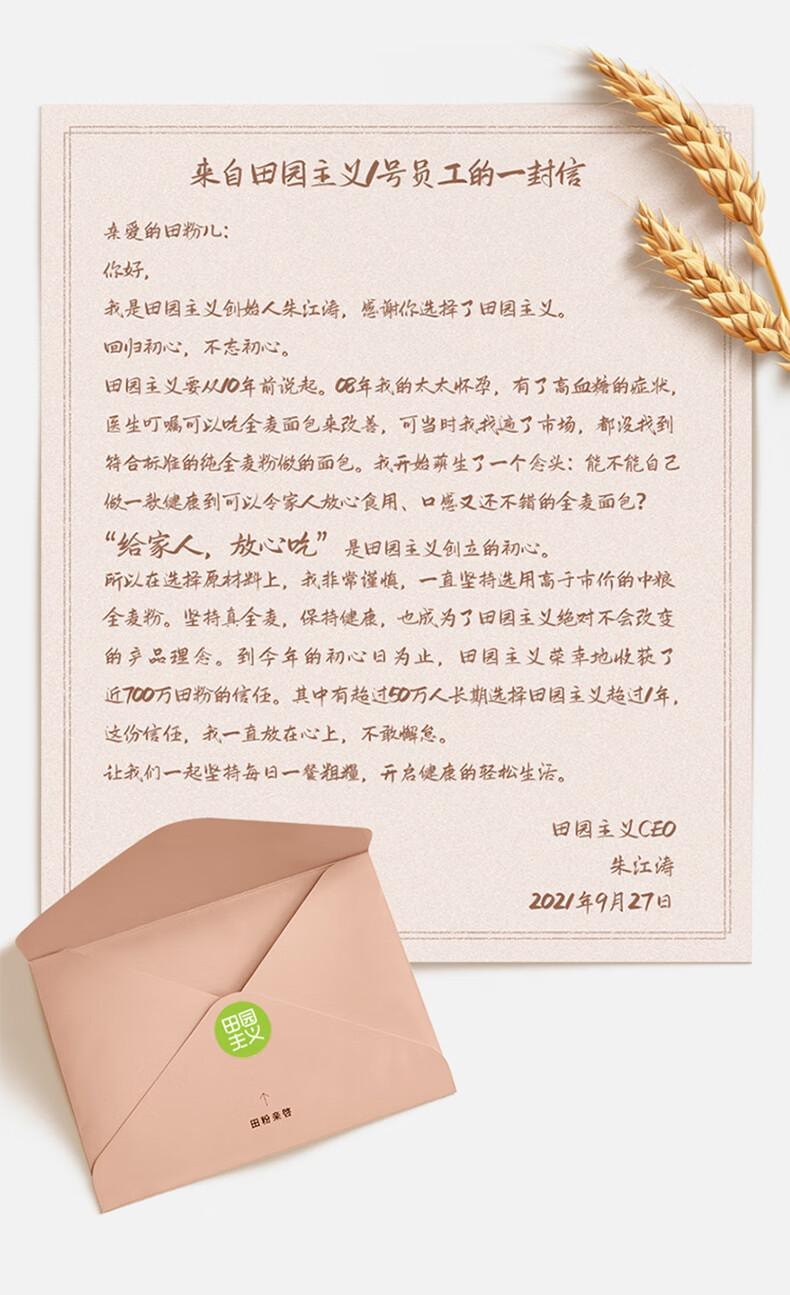 来自田园主义1号员工的一封信
亲爱的田粉儿：
你好，
我是田园主义创始人朱江涛，感谢你选择了田园主义。
回归初心，不忘初心。
田园主义要从10年前说起。08年我的太太怀孕，有了高血糖的症状，
医生叮嘱可以吃全麦面包来改善，可当时我找遍了市场，都没找到
符合标准的纯全麦粉做的面包。我开始萌生了一个念头：能不能自己
做一款健康到可以令家人放心食用、口感又还不错的全麦面包？
“给家人，放心吃”是田园主义创立的初心。
所以在选择原材料上，我非常谨慎，一直坚持选用高于市价的中粮
全麦粉。坚持真全麦，保持健康，也成为了田园主义绝对不会改变
的产品理念。到今年的初心日为止，田园主义荣幸地收获了
近700万田粉的信任。其中有超过50万人长期选择田园主义超过1年，
这份信任，我一直放在心上，不敢懈怠。
让我们一起坚持每日一餐粗粮，开启健康的轻松生活。
田园主义CEO
朱江涛
2021年9月27日
田园
主义
田粉亲启